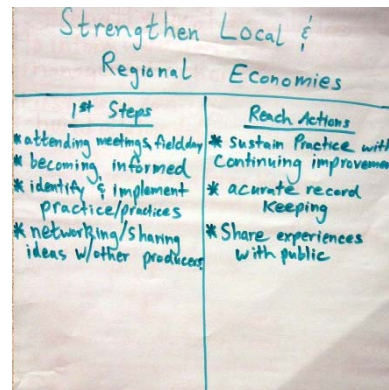 Strengthen Local &
Regional Economies
1st Steps
* attending meetings, fieldday
* becoming informed
* identify & implement
practice/practices
* networking/sharing
ideas w/other producers
Reach Actions
* sustain Practice with
Continuing improvemen
* acurate record
Keeping
* Share experiences
with public